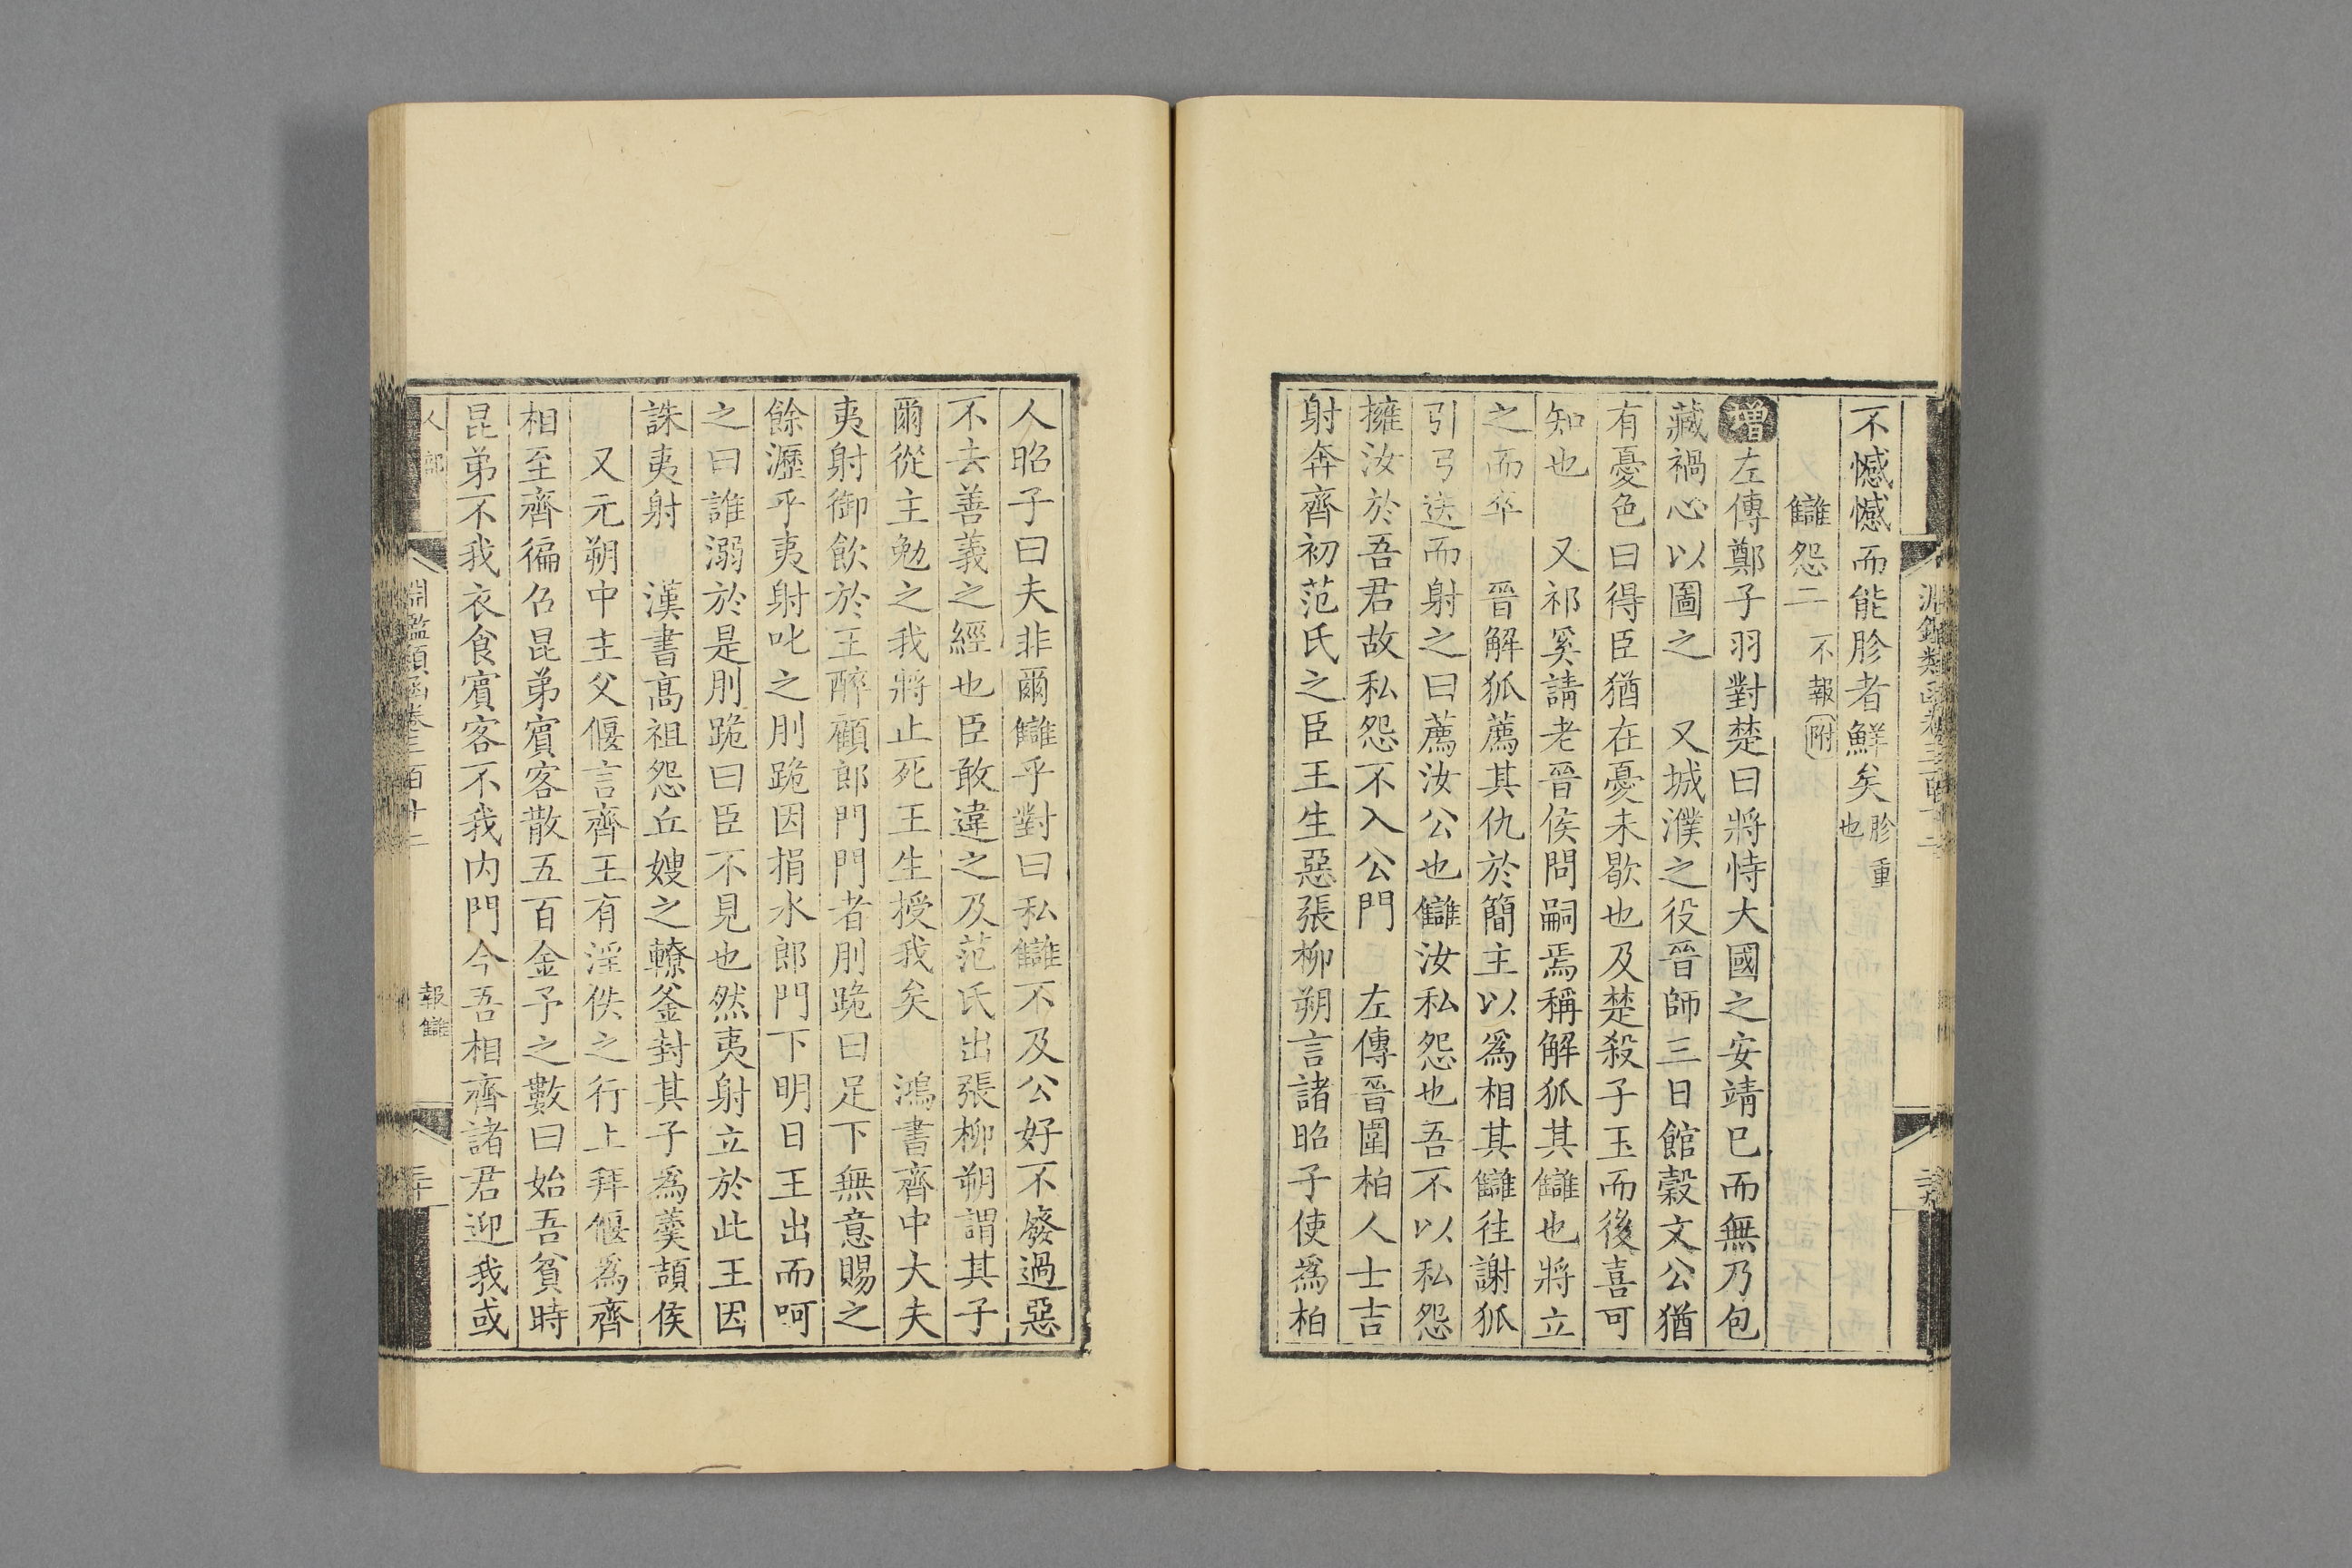 不憾憾而能眕者鮮矣眕重也
讎怨二不報附
增左傳鄭子羽對楚曰將恃大國之安靖已而無乃包
藏禍心以圖之　又城濮之役晉師三日館穀文公猶
有憂色曰得臣猶在憂未歇也及楚殺子玉而後喜可
知也　又祁奚請老晉侯問嗣焉稱解狐其讎也將立
之而卒　晉解狐薦其仇於簡主以爲相其讎往謝狐
引弓送而射之曰薦汝公也讎汝私怨也吾不以私怨
擁汝於吾君故私怨不入公門　左傳晉圍柏人士吉
射奔齊初范氏之臣王生惡張柳朔言諸昭子使爲柏
人昭子曰夫非爾讎乎對曰私讎不及公好不廢過惡
不去善義之經也臣敢違之及范氏出張柳朔謂其子
爾從主勉之我將止死王生授我矣　鴻書齊中大夫
夷射御飲於王醉顧郎門門者刖跪曰足下無意賜之
餘瀝乎夷射叱之刖跪因捐水郎門下明日王出而呵
之曰誰溺於是刖跪曰臣不見也然夷射立於此王因
誅夷射　漢書高祖怨丘嫂之轑釜封其子爲羹頡侯
又元朔中主父偃言齊王有淫佚之行上拜偃爲齊
相至齊徧召昆弟賓客散五百金予之數曰始吾貧時
昆弟不我衣食賓客不我内門今吾相齊諸君迎我或
人部
淵鑑類函卷三百十二
報讎
三十